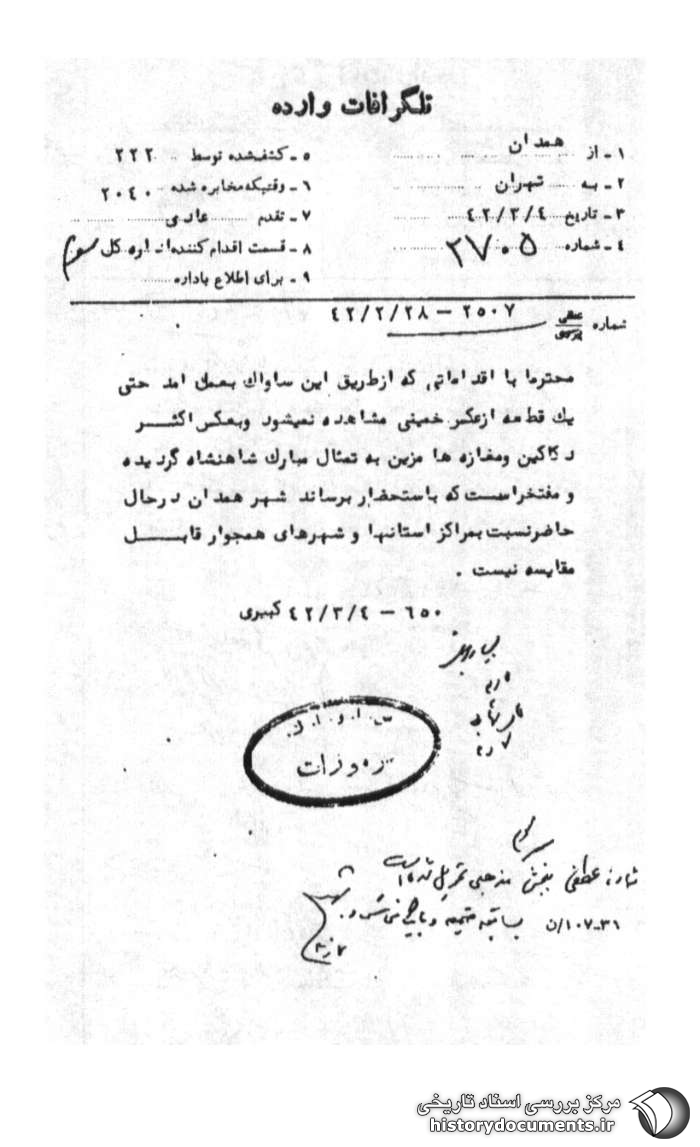 تلگرافات وارده
۱ - از همدان
۲ - به تهران
۳ - تاریخ ۴۲/۳/۴
۴ - شماره ۲۷۰۵
۵ - کشف شده توسط ۲۲۲
۶ - وقتیکه مخابره شده ۲۰۴۰
۷ - تقدم عادی
۸ - قسمت اقدام کننده اداره کل سوم
۹ - برای اطلاع باداره
شماره عطفی پیروی ۲۵۰۷ - ۴۲/۲/۲۸
محترما با اقداماتی که ازطریق این ساواک بعمل امد حتی
یک قطعه ازعکس خمینی مشاهده نمیشود وبعکس اکثر
دکاکین ومغازه ها مزین به تمثال مبارک شاهنشاه گردیده
و مفتخراست که باستحضار برساند شهر همدان درحال
حاضرنسبت بمراکز استانها و شهرهای همجوار قابل
مقایسه نیست .
۶۵۰ - ۴۲/۳/۴ کبیری
س.ا.و.ا.ک.
عطفی بخش مذهبی
۳۱-۱۰۷/ن
مرکز بررسی اسناد تاریخی
historydocuments.ir